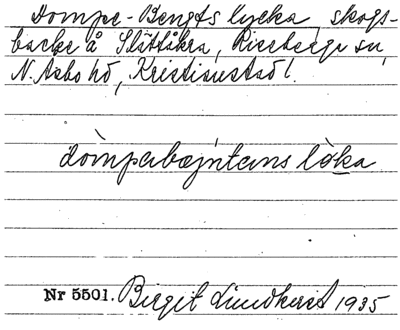 Dompe-Bengts lycka, skogs-
backe å Slättåkra, Riseberga sn,
N. Åsbo hd, Kristianstads l.
dòmpabæjntans lø̀ka
Nr 5501. Birgit Lindkvist 1935